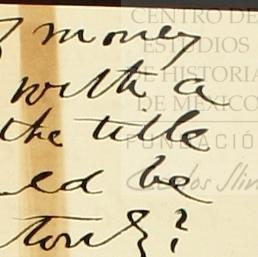 money
with a
the title
be
CENTRO DE
ESTUDIOS
DE HISTORIA
DE MÉXICO
FUNDACIÓ
Carlos Slim